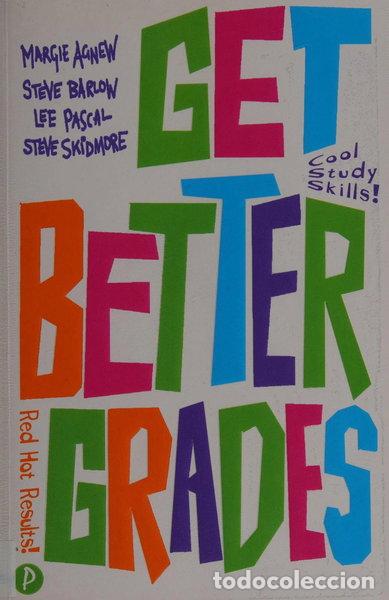 MARGIE AGNEW
STEVE BARLOW
LEE PASCAL
STEVE SKIDMORE
GET
Cool
Study
Skills!
BETTER
GRADES
Red Hot Results!
P
todocoleccion
todocoleccion.net